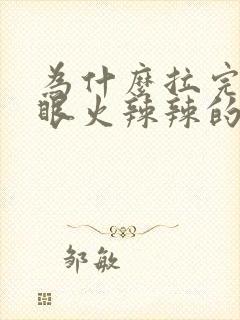 为什麼拉完
眼火辣辣的
邹敏